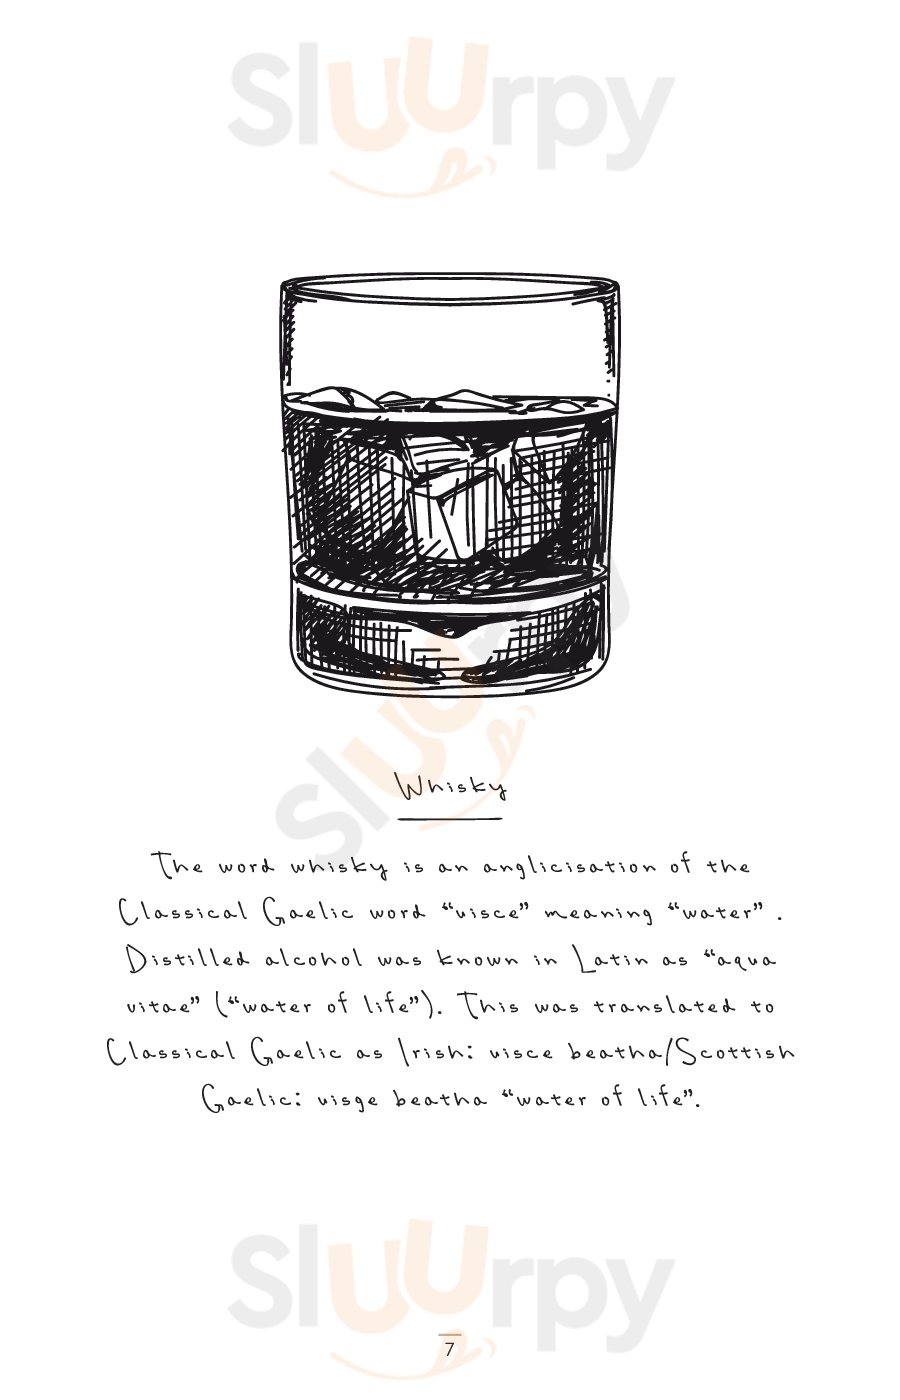 Sluurpy
Sluurpy
Whisky
The word whisky is an anglicisation of the
Classical Gaelic word “uisce” meaning “water” .
Distilled alcohol was known in Latin as “aqua
vitae” (“water of life”). This was translated to
Classical Gaelic as Irish: uisce beatha/Scottish
Gaelic: uisge beatha “water of life”.
Sluurpy
7